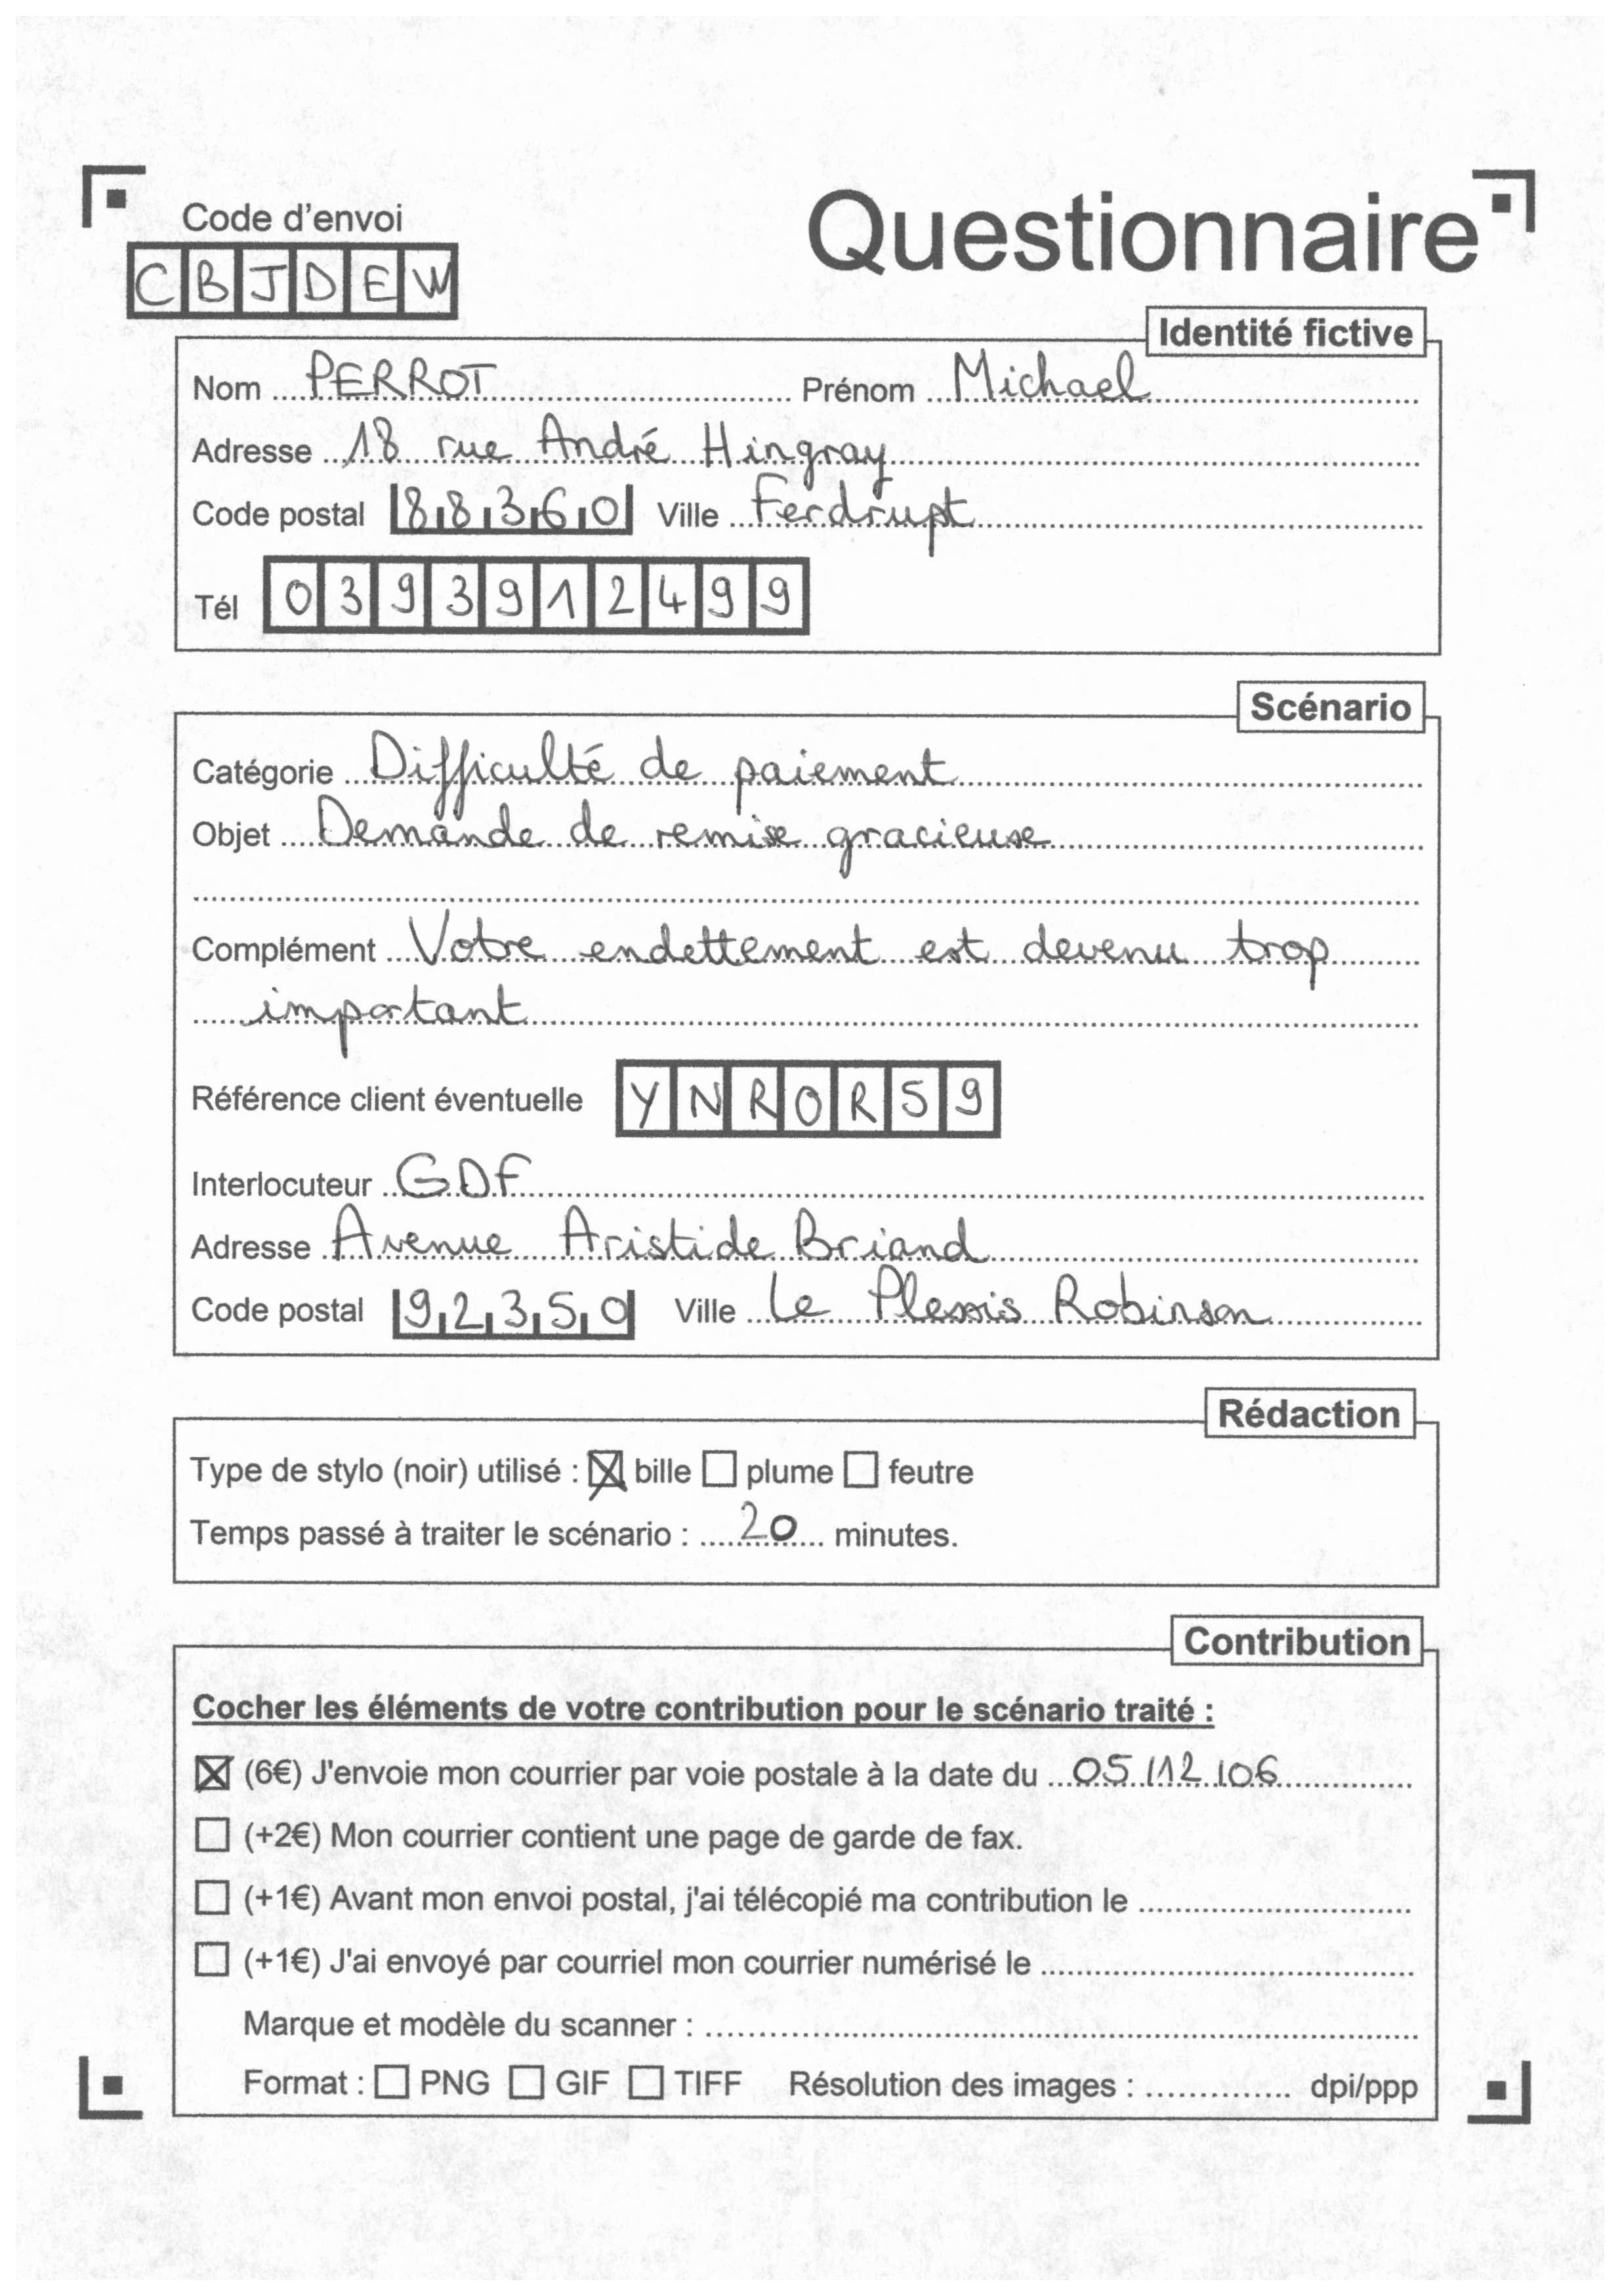 Code d'envoi
CBJDEW
Questionnaire
Identité fictive
Nom PERROT Prénom Michael
Adresse 18 rue André Hingray
Code postal 88360 Ville Ferdrupt
Tél 0393912499
Scénario
Catégorie Difficulté de paiement
Objet Demande de remise gracieuse
Complément Votre endettement est devenu trop
important
Référence client éventuelle YNROR59
Interlocuteur GDF
Adresse Avenue Aristide Briand
Code postal 92350 Ville Le Plessis Robinson
Rédaction
Type de stylo (noir) utilisé : ☒ bille ☐ plume ☐ feutre
Temps passé à traiter le scénario : 20 minutes.
Contribution
Cocher les éléments de votre contribution pour le scénario traité :
☒ (6€) J'envoie mon courrier par voie postale à la date du 05/12/06
☐ (+2€) Mon courrier contient une page de garde de fax.
☐ (+1€) Avant mon envoi postal, j'ai télécopié ma contribution le
☐ (+1€) J'ai envoyé par courriel mon courrier numérisé le
Marque et modèle du scanner :
Format : ☐ PNG ☐ GIF ☐ TIFF Résolution des images : dpi/ppp